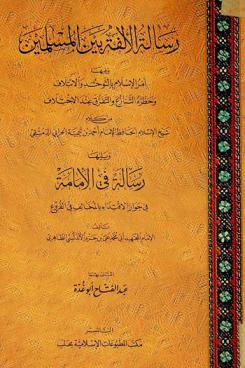 رسالة الألفة بين المسلمين
وفيها
أمر الإسلام بالتوحد والائتلاف
وحظره التنازع والتفرق عند الاختلاف
من كلام
شيخ الإسلام الحافظ الإمام أحمد بن تيمية الحراني الدمشقي
ويليها
رسالة في الإمامة
في جواز الاقتداء بالمخالف في الفروع
تأليف
الإمام المجتهد أبي محمد علي بن حزم الأندلسي الظاهري
اعتنى بهما
عبد الفتاح أبو غدة
الناشر
مكتب المطبوعات الإسلامية بحلب